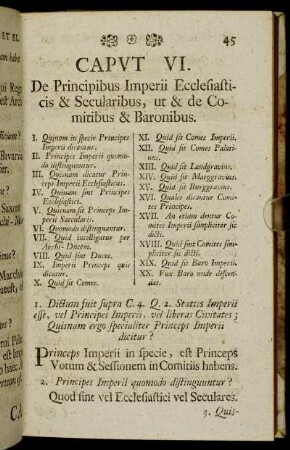 45
CAPVT VI.
De Principibus Imperii Ecclesiasti-
cis & Secularibus, ut & de Co-
mitibus & Baronibus.
I. Quinam in specie Principes
Imperii dicantur.
II. Principes Imperii quomo-
do distinguantur.
III. Quinam dicatur Prin-
ceps Imperii Ecclesiasticus.
IV. Quinam sint Principes
Ecclesiastici.
V. Quisnam sit Princeps Im-
perii Secularis.
VI. Quomodo distinguantur.
VII. Quid intelligatur per
Archi-Ducem.
VIII. Quid sint Duces.
IX. Imperii Princeps quis
dicatur.
X. Quid sit Comes.
XI. Quid sit Comes Imperii.
XII. Quid sit Comes Palati-
nus.
XIII. Quid sit Landgravius.
XIV. Quid sit Marggravius.
XV. Quid sit Burggravius.
XVI. Quales dicantur Comi-
tes Principes.
XVII. An etiam dentur Co-
mites Imperii simpliciter sic
dicti.
XVIII. Quid sint Comites sim-
pliciter sic dicti.
XIX. Quid sit Baro Imperii.
XX. Vox Baro unde descen-
dat.
1. Dictum fuit supra C. 4. Q. 2. Status Imperii
esse, vel Principes Imperii, vel liberas Civitates;
Quinam ergo specialiter Princeps Imperii
dicitur?
Princeps Imperii in specie, est Princeps
Votum & Sessionem in Comitiis habens.
2. Principes Imperii quomodo distinguuntur?
Quod sint vel Ecclesiastici vel Seculares.
3. Quis-